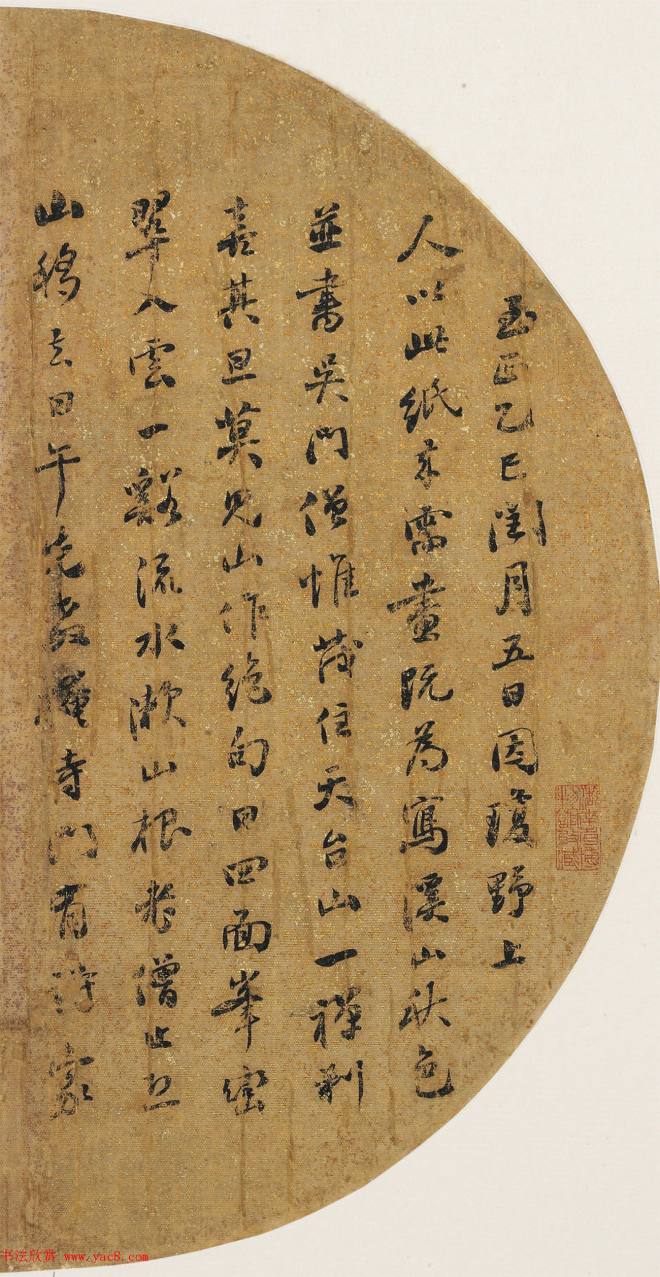 至正乙巳閏月五日因瓊野上
人以此紙來需畫既為寫溪山秋色
並書吳門僧惟茂住天台山一禪刹
喜其旦莫見山作絕句曰四面峯巒
翠入雲一谿流水漱山根老僧止恐
山移去日午先敎掩寺門有詩家
书法欣赏 www.yac8.com